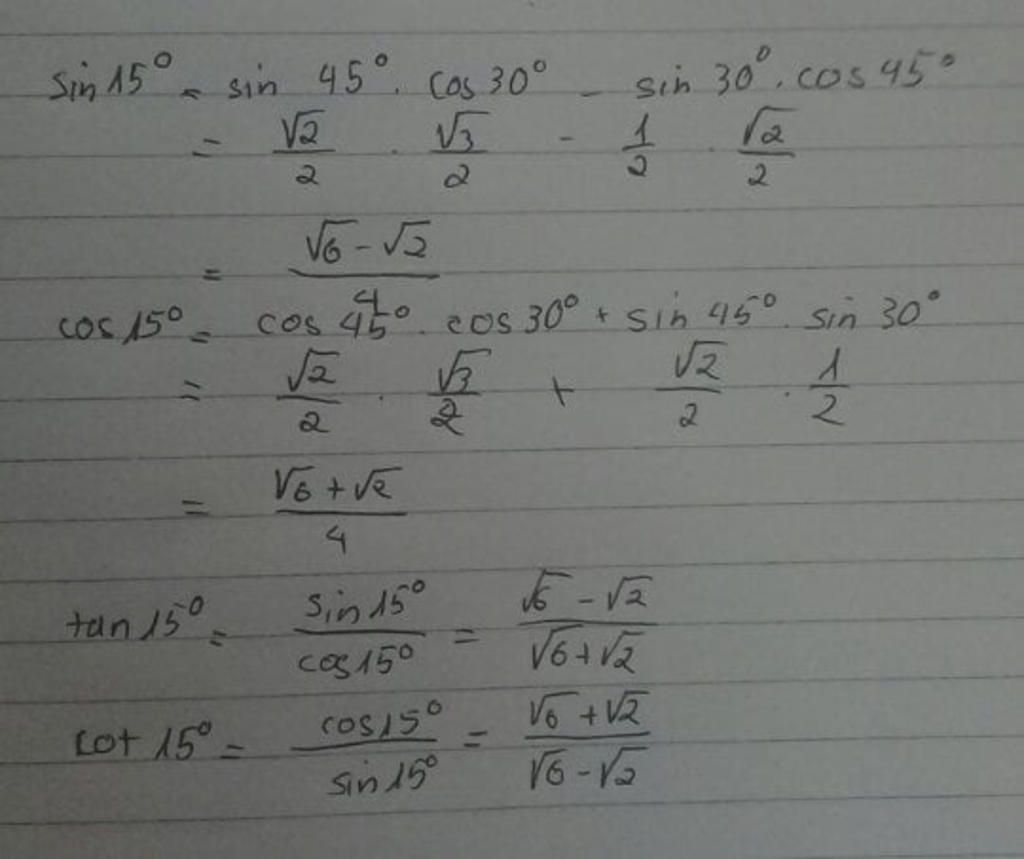 sin 15° = sin 45° . cos 30° - sin 30° . cos 45°
= √2/2 . √3/2 - 1/2 . √2/2
= (√6 - √2)/4
cos 15° = cos 45° . cos 30° + sin 45° . sin 30°
= √2/2 . √3/2 + √2/2 . 1/2
= (√6 + √2)/4
tan 15° = sin 15°/cos 15° = (√6 - √2)/(√6 + √2)
cot 15° = cos 15°/sin 15° = (√6 + √2)/(√6 - √2)